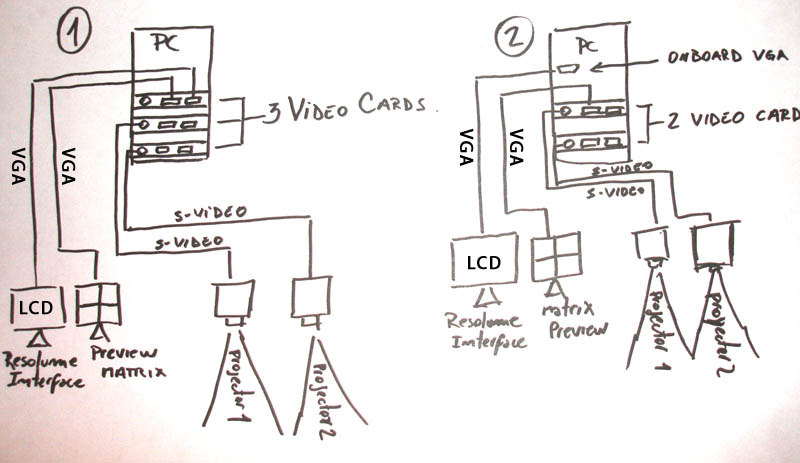 1
PC
3 Video Cards.
VGA
VGA
S-VIDEO
S-VIDEO
LCD
Resolume
Interface
Preview
MATRIX
Projector 1
Projector 2
2
PC
ONBOARD VGA
2 VIDEO CARD
VGA
VGA
S-VIDEO
S-VIDEO
LCD
Resolume
Interface
Matrix
Preview
Projector 1
Projector 2